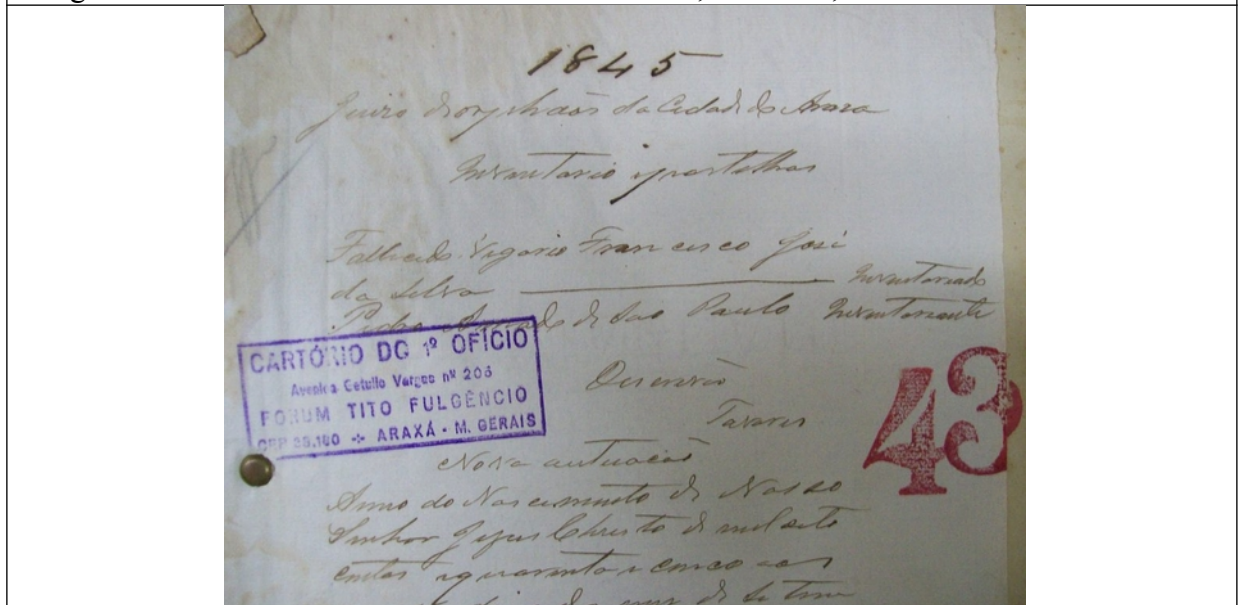 1845
Juizo de orphaõs da Cidade do Araxa
Inventario e partilhas
Fallecido Vigario Francisco José
da Silva Inventariado
Pedro Amado de Sao Paulo Inventariante
Escrivão
Tavares
CARTÓRIO DO 1º OFÍCIO
Avenida Getulio Vargas nº 205
FORUM TITO FULGÊNCIO
CEP 38.180 ARAXÁ - M. GERAIS
43
Nova autuacaõ
Anno do Nascimento de Nosso
Senhor Jesus Christo de mil oito
centos e quarenta e cinco aos
do mez de